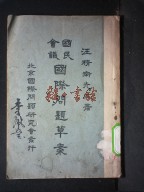 汪精衛先生著
國民
會議
國際問題草案
北京國際問題研究會印行